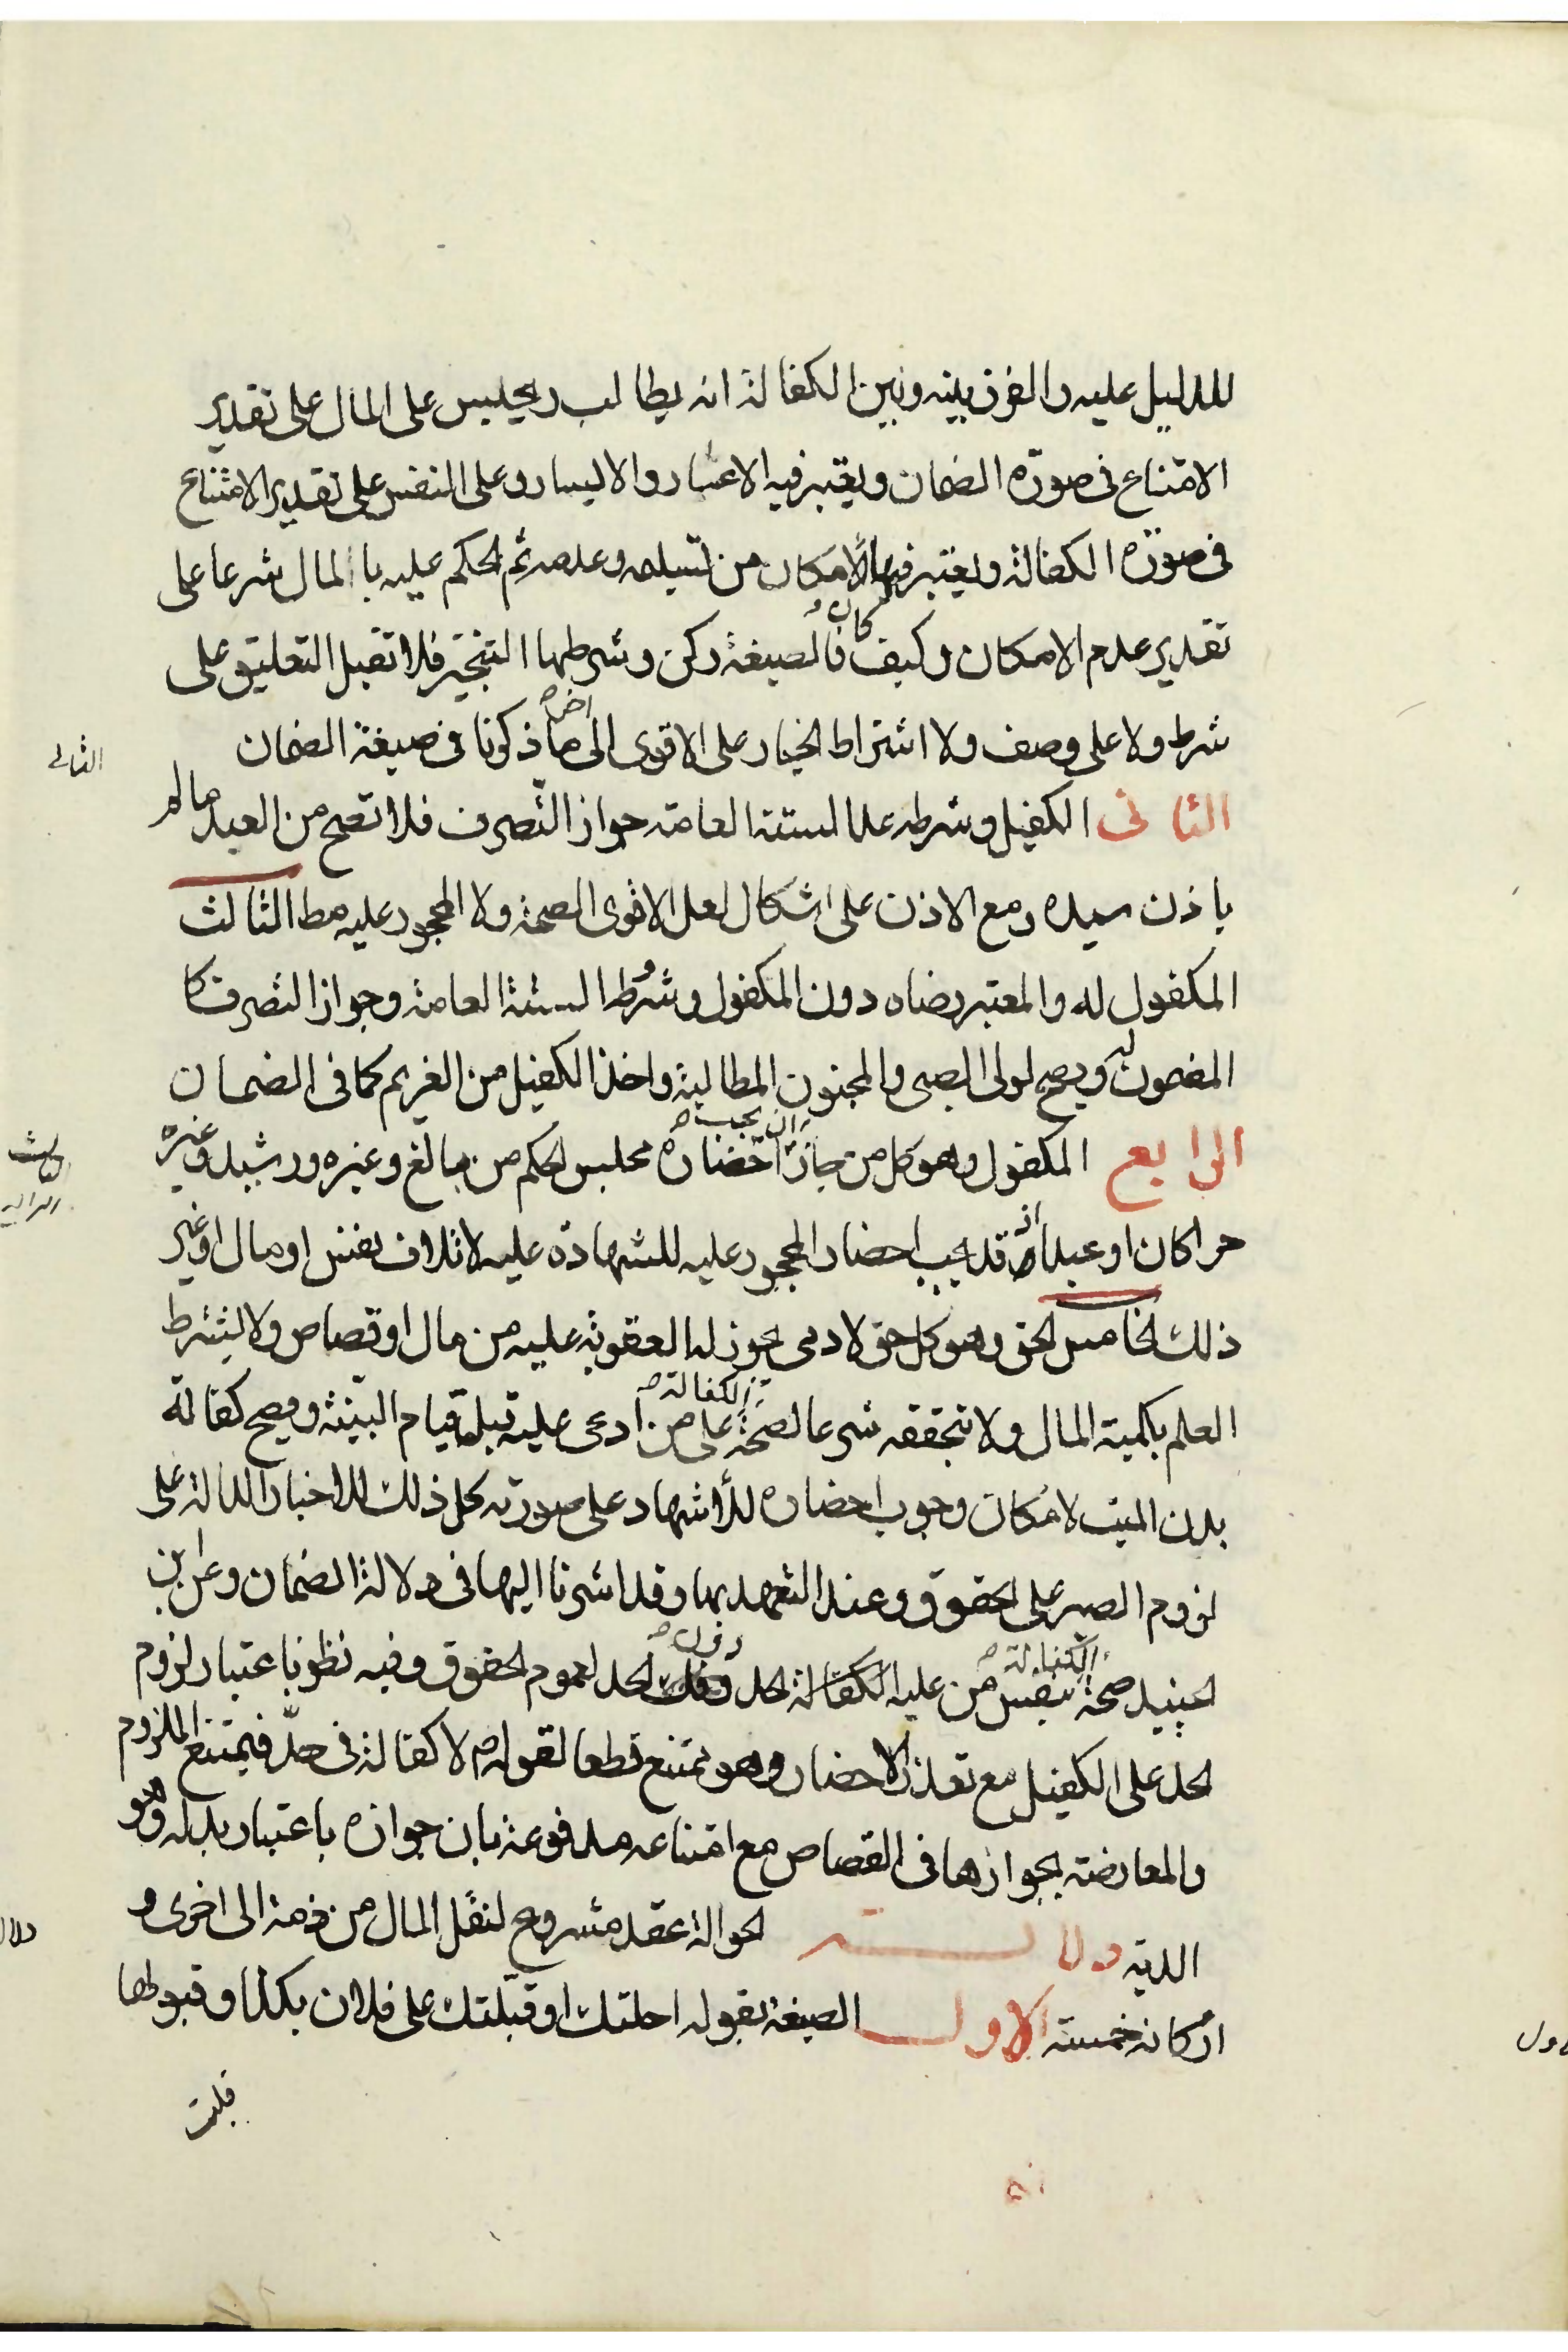 للدليل عليه والفرق بينه وبين الكفالة انه يطالب ويحبس على المال على تقدير
الامتناع فى صورة الضمان ويعتبر فيه الاعسار والايسار وعلى النفس على تقدير الامتناع
فى صورة الكفالة ويعتبر فيها الامكان من تسليمه وعدمه ثم الحكم عليه بالمال شرعا على
تقدير عدم الامكان وكيف كان فالصيغة ركن وشرطها التنجيز فلا تقبل التعليق على
شرط ولا على وصف ولا اشتراط الخيار على الاقوى الى اخر ما ذكرنا فى صيغة الضمان
الثانى الكفيل وشرطه علما السنة العامة جواز التصرف فلا تصح من العبد مالم
ياذن سيده ومع الاذن على اشكال لعل الاقوى الصحة ولا المحجور عليه مط الثالث
المكفول له والمعتبر رضاه دون المكفول وشرط السنة العامة وجواز التصرف كا
المضمون له ويصح لولى الصبى والمجنون المطالبة واخذ الكفيل من الغريم كما فى الضمان
الرابع المكفول وهو كل من جاز ان يجب احضاره مجلس الحكم من بالغ وغيره ورشيد وغيره
حرا كان او عبدا اذ قد يجب احضار المحجور عليه للشهادة عليه لاتلاف نفس او مال او غير
ذلك الخامس الحق وهو كل حق لادمى يجوز له العقوبة عليه من مال او قصاص ولا يشترط
العلم بكمية المال ولا تحققه شرعا لصحة الكفالة على من ادعى عليه قبل قيام البينة ويصح كفالة
بدن الميت لامكان وجوب احضاره للأشهاد على صورته كل ذلك للاخبار الدالة على
لزوم الصبر على الحقوق وعند التعهد بها وقد اشرنا اليها فى دلالة الضمان وعن ابن
الجنيد صحة الكفالة بنفس من عليه الكفالة لحد دون الحد لعموم الحقوق وفيه نظر باعتبار لزوم
الحد على الكفيل مع تعذر الاحضار وهو ممتنع قطعا لقوله ص لا كفالة فى حدّ فيمتنع الملزوم
والمعارضة بجوازها فى القصاص مع امتناعه مدفوعة بان جوازه باعتبار بدله وهو
الدية دلالة الحوالة عقد مشروع لنقل المال من ذمة الى اخرى و
اركانه خمسة الاول الصيغة بقوله احلتك او قبّلتك على فلان بكذا وقبولها
قبلت
الثالث
الرابع
دلال
ول